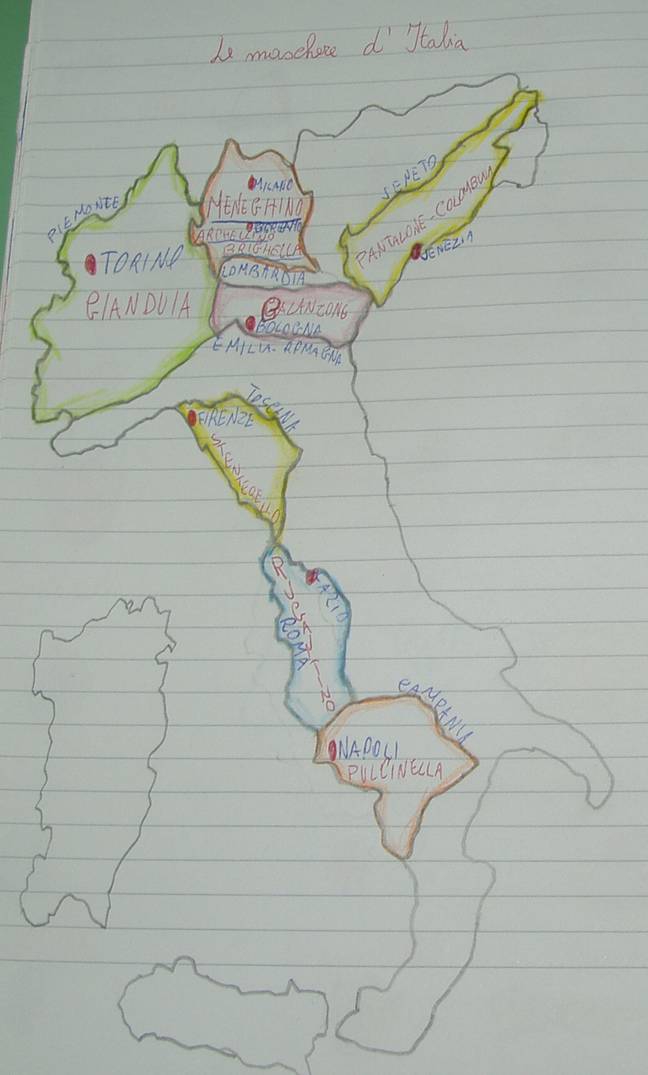 Le maschere d'Italia
PIEMONTE
TORINO
GIANDUIA
MILANO
MENEGHINO
ARCHELLINO
BRIGHELLA
LOMBARDIA
VENETO
PANTALONE-COLOMBINA
VENEZIA
BALANZONE
BOLOGNA
EMILIA-ROMAGNA
TOSCANA
FIRENZE
LAZIO
ROMA
CAMPANIA
NAPOLI
PULCINELLA